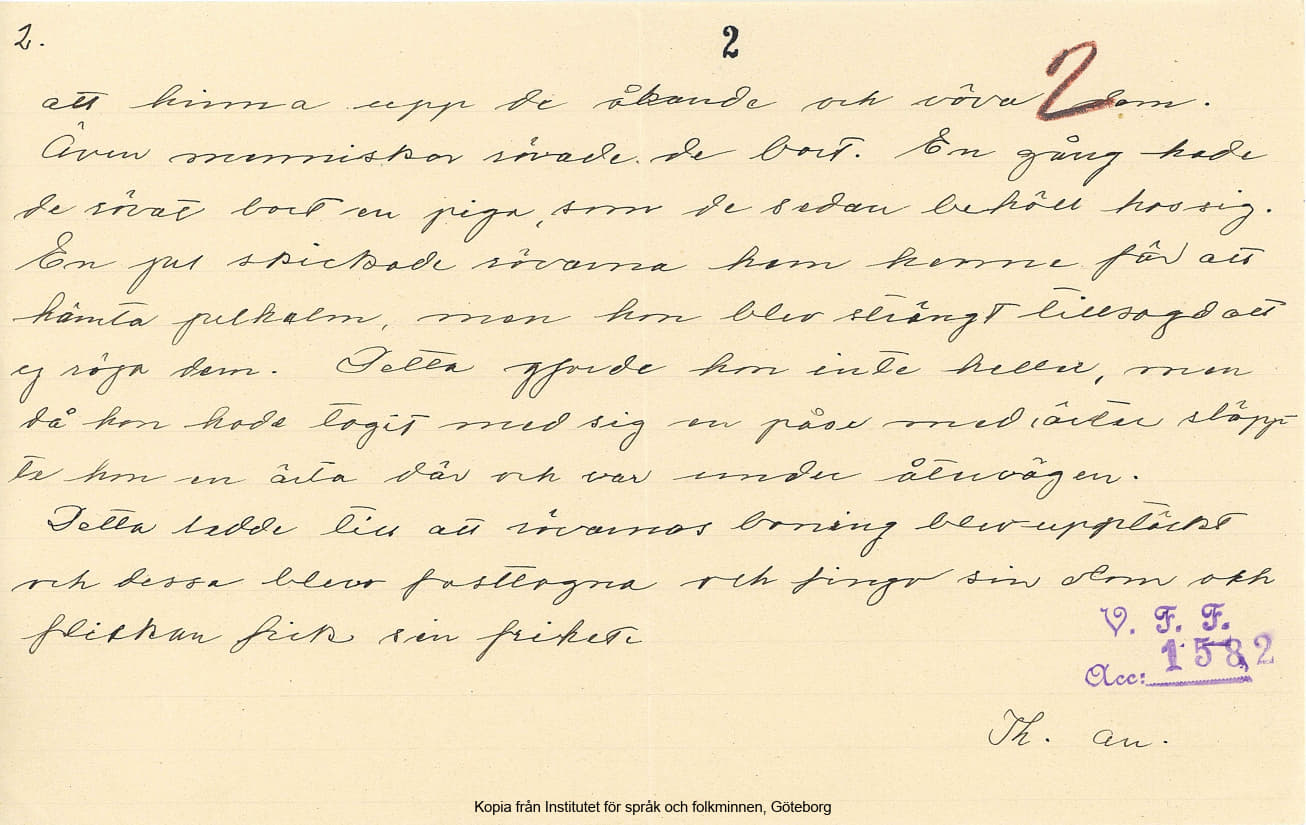 2.
2
2
att hinna upp de åkande och röva dem.
Även menniskor rövade de bort. En gång hade
de rövat bort en piga, som de sedan behöll hos sig.
En jul skickade rövarna hem henne för att
hämta julhalm, men hon blev strängt tillsagd att
ej röja dem. Detta gjorde hon inte heller, men
då hon hade tagit med sig en påse med ärter släpp-
te hon en ärta där och var under återvägen.
Detta ledde till att rövarnas boning blev upptäckt
och dessa blevo fasttagna och fingo sin dom och
flickan fick sin frihet.
V. F. F.
Acc: 1582
Th. An.
Kopia från Institutet för språk och folkminnen, Göteborg